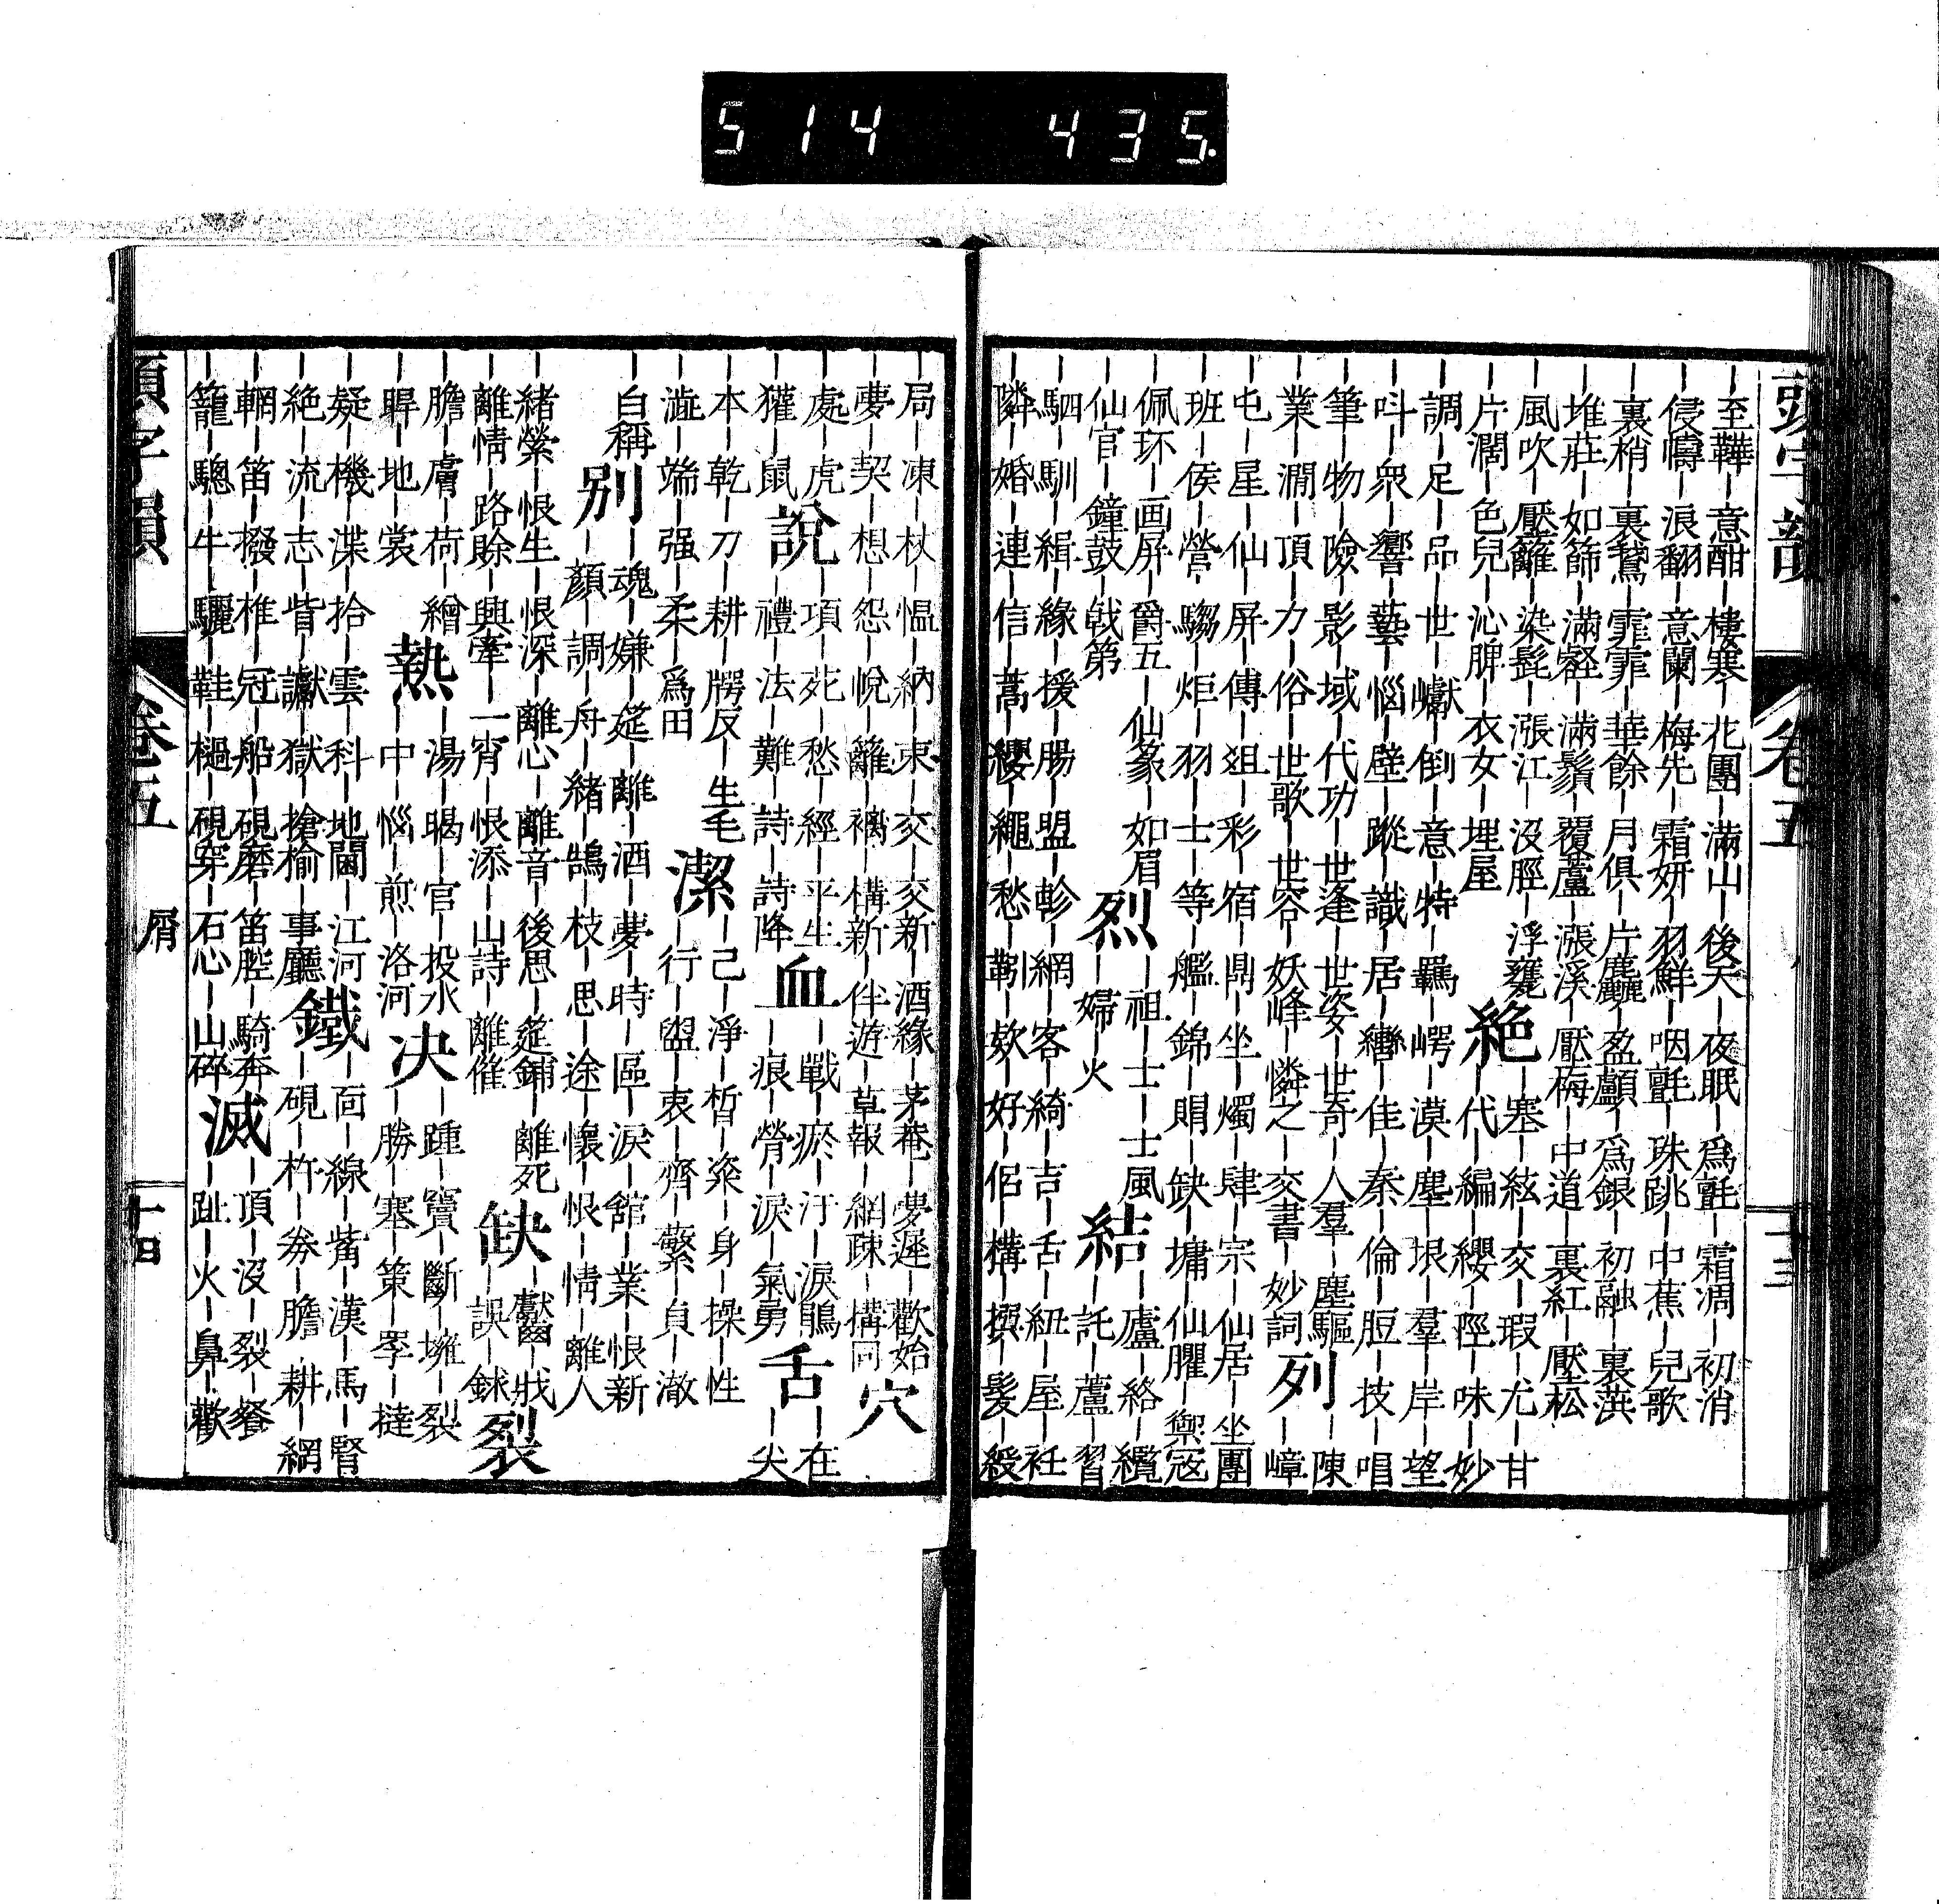 514 435.
頭字韻 卷五 十三
至鞾│意酣│樓寒│花團│滿山│後天│夜眠│爲氈│霜凋│初消
│侵幬│浪翻│意闌│梅先│霜妍│羽鮮│咽氈│珠跳│中蕉│兒歌
│裏梢│裏鵞│霏霏│華餘│月俱│片麤│盈顱│爲銀│初融│裏洪
│堆莊│如篩│滿壑│滿鬚│覆蘆│漲溪│壓梅│中道│裏紅│壓松
│風吹│壓籬│染髭│漲江│沒脛│浮甕
│片濶│色皃│沁脾│衣女│埋屋 絶│塞│絃│交│瑕│尤│甘
│調│足│品│世│巘│倒│意│特│羈│崿│漠│塵│垠│羣│岸│望
│代│編│纓│陘│味│妙
│呌│衆│響│藝│惱│壁│蹤│識│居│轡│佳│秦│倫│脰│技│唱
│筆│物│險│影│域│代功│世逢│世姿│世奇│人羣│塵驅 列│陳
│業│澗│頂│力│俗│世歌│世容│妖峰│憐之│交書│妙詞│嶂
│屯│星│仙│屏│傳│俎│彩│宿│鼎│坐│燭│肆│宗│仙居│坐團
│班│侯│營│騶│炬│羽│士│等│艦│錦│賵│缺│墉│仙臞│禦寇
│佩环│画屏│爵五│仙篆│如眉 烈│祖│士│士風 結│廬│絡│纜
│仙官│鐘鼓│戟第│婦│火│託│蘆│習
│駟│馴│緝│緣│援│腸│盟│軫│網│客│綺│吉│舌│紐│屋│衽
│隣│婚│連│信│蒿│纓│繩│愁│剺│欸│好│侶│構│撰│髮│綬
│局│凍│杖│愠│納│束│交│交新│酒緣│茅菴│夢遲│歡始
│夢│契│想│怨│悅│籬│褵│構新│伴遊│草報│網疎│構同 穴
│處│虎│項│死│愁│經│平生│戰│瘀│汙│淚鵑│在
│獾│鼠 說│禮│法│難│詩│詩降 血│痕│膋│淚│氣勇 舌│尖
│本│乾│刀│耕│牓│反│生毛│己│淨│皙│粢│身│操│性
│澁│端│强│柔│爲田 潔│行│盥│衷│齊│繁│貞│澈
自稱 别│魂│嫌│筵│離│酒│夢│時│區│淚│館│業│恨新
│顏│調│舟│緒│鵠│枝│思│途│懷│恨│情│離人
│緒縈│恨生│恨深│離心│離音│後思│筵鋪│離死 缺│獻醫│戕
│離情│路賒│興牽│一宵│恨添│山詩│離催│誤│銶 裂
│膽│膚│荷│繒 熱│湯│暍│官│投水 决│踵│竇│斷│壅│裂
│睅│地│裳│中│惱│煎│洛河│勝│塞│策│罦│撻
│疑│機│渫│拾│雲│科│地閫│江河 鐵│面│線│觜│漢│馬│腎
│絶│流│志│眥│讞│獄│搶榆│事廳│硯│杵│劵│膽│耕│網
│輞│笛│撥│椎│冠│船│硯磨│笛腔│騎奔 滅│頂│沒│裂│餐
│籠│驄│牛│驪│鞋│檛│硯穿│石心│山碎│趾│火│鼻│歡
頭字韻 卷五 屑 十四